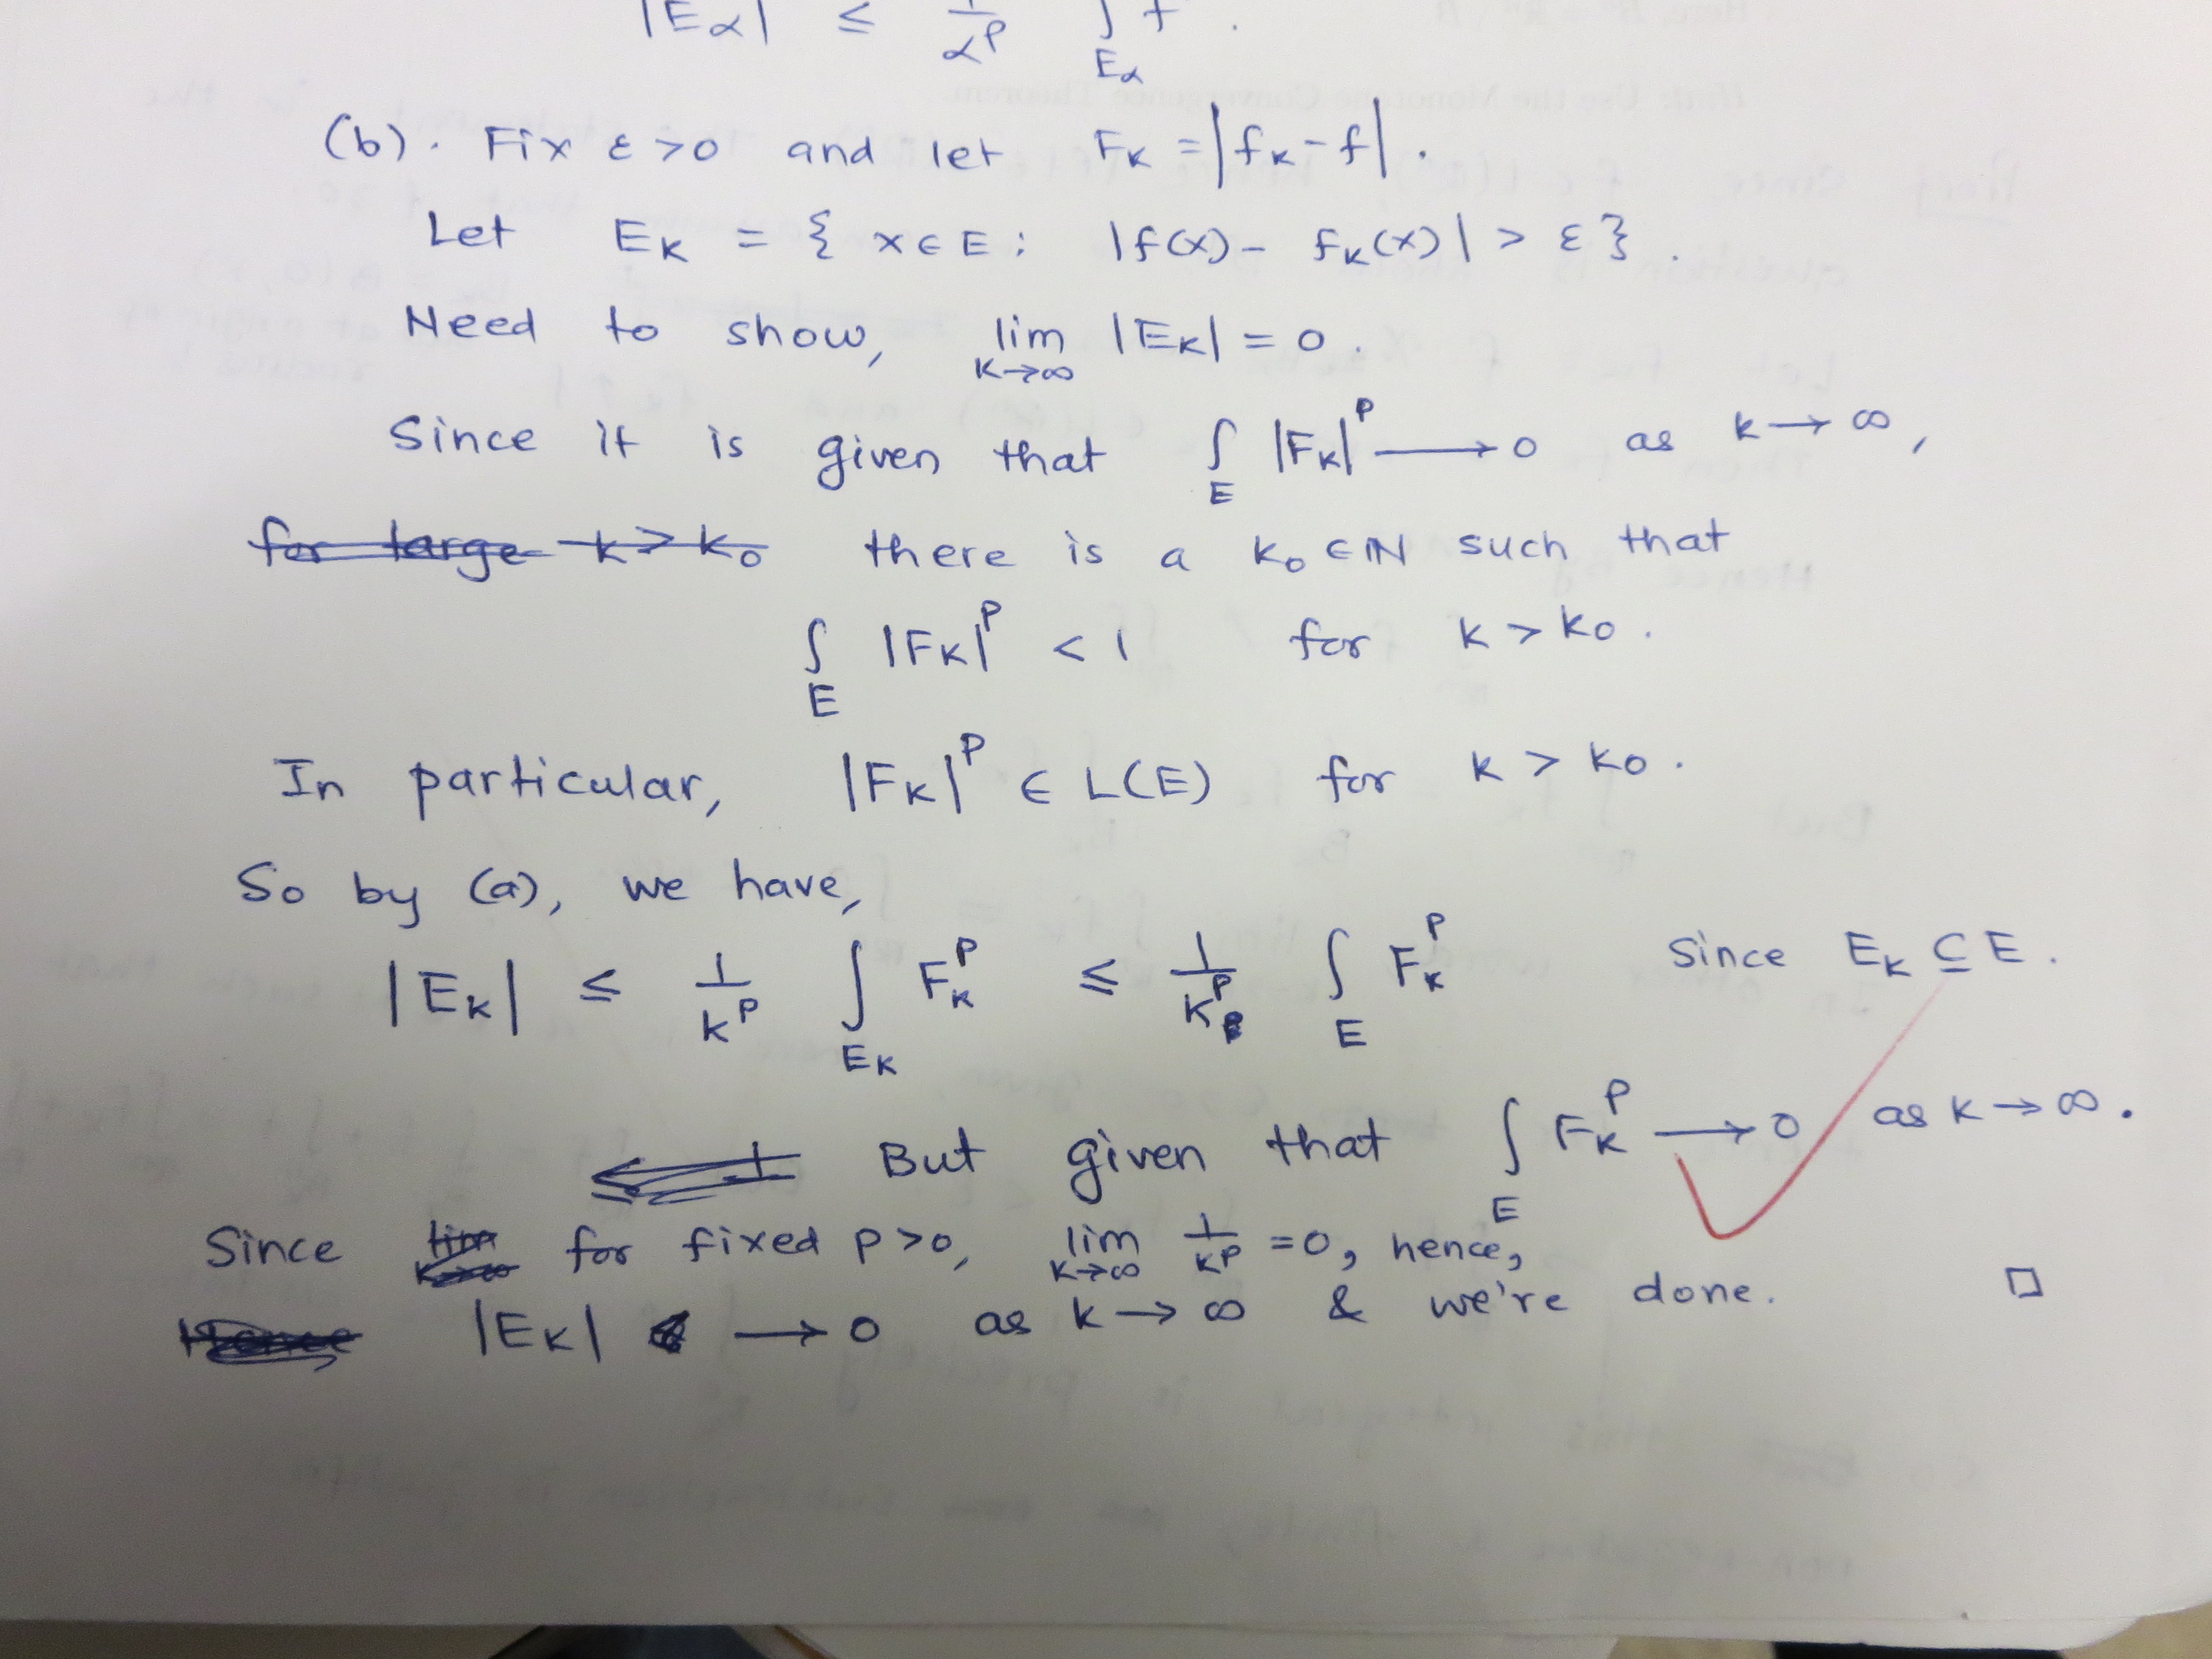 |Eα| ≤ 1/α^p ∫_{Eα} f
(b). Fix ε>0 and let F_k = |f_k - f|.
Let E_k = { x ∈ E : |f(x) - f_k(x)| > ε}.
Need to show, lim_{k→∞} |E_k| = 0.
Since it is given that ∫_E |F_k|^p → 0 as k → ∞,
for large k > k_0 there is a k_0 ∈ ℕ such that
∫_E |F_k|^p < 1 for k > k_0.
In particular, |F_k|^p ∈ L(E) for k > k_0.
So by (a), we have,
|E_k| ≤ 1/k^p ∫_{E_k} F_k^p ≤ 1/k^p ∫_E F_k^p Since E_k ⊆ E.
≤ 1 But given that ∫_E F_k^p → 0 as k → ∞.
Since lim for fixed p>0, lim_{k→∞} 1/k^p = 0, hence,
|E_k| → 0 as k → ∞ & we're done. □